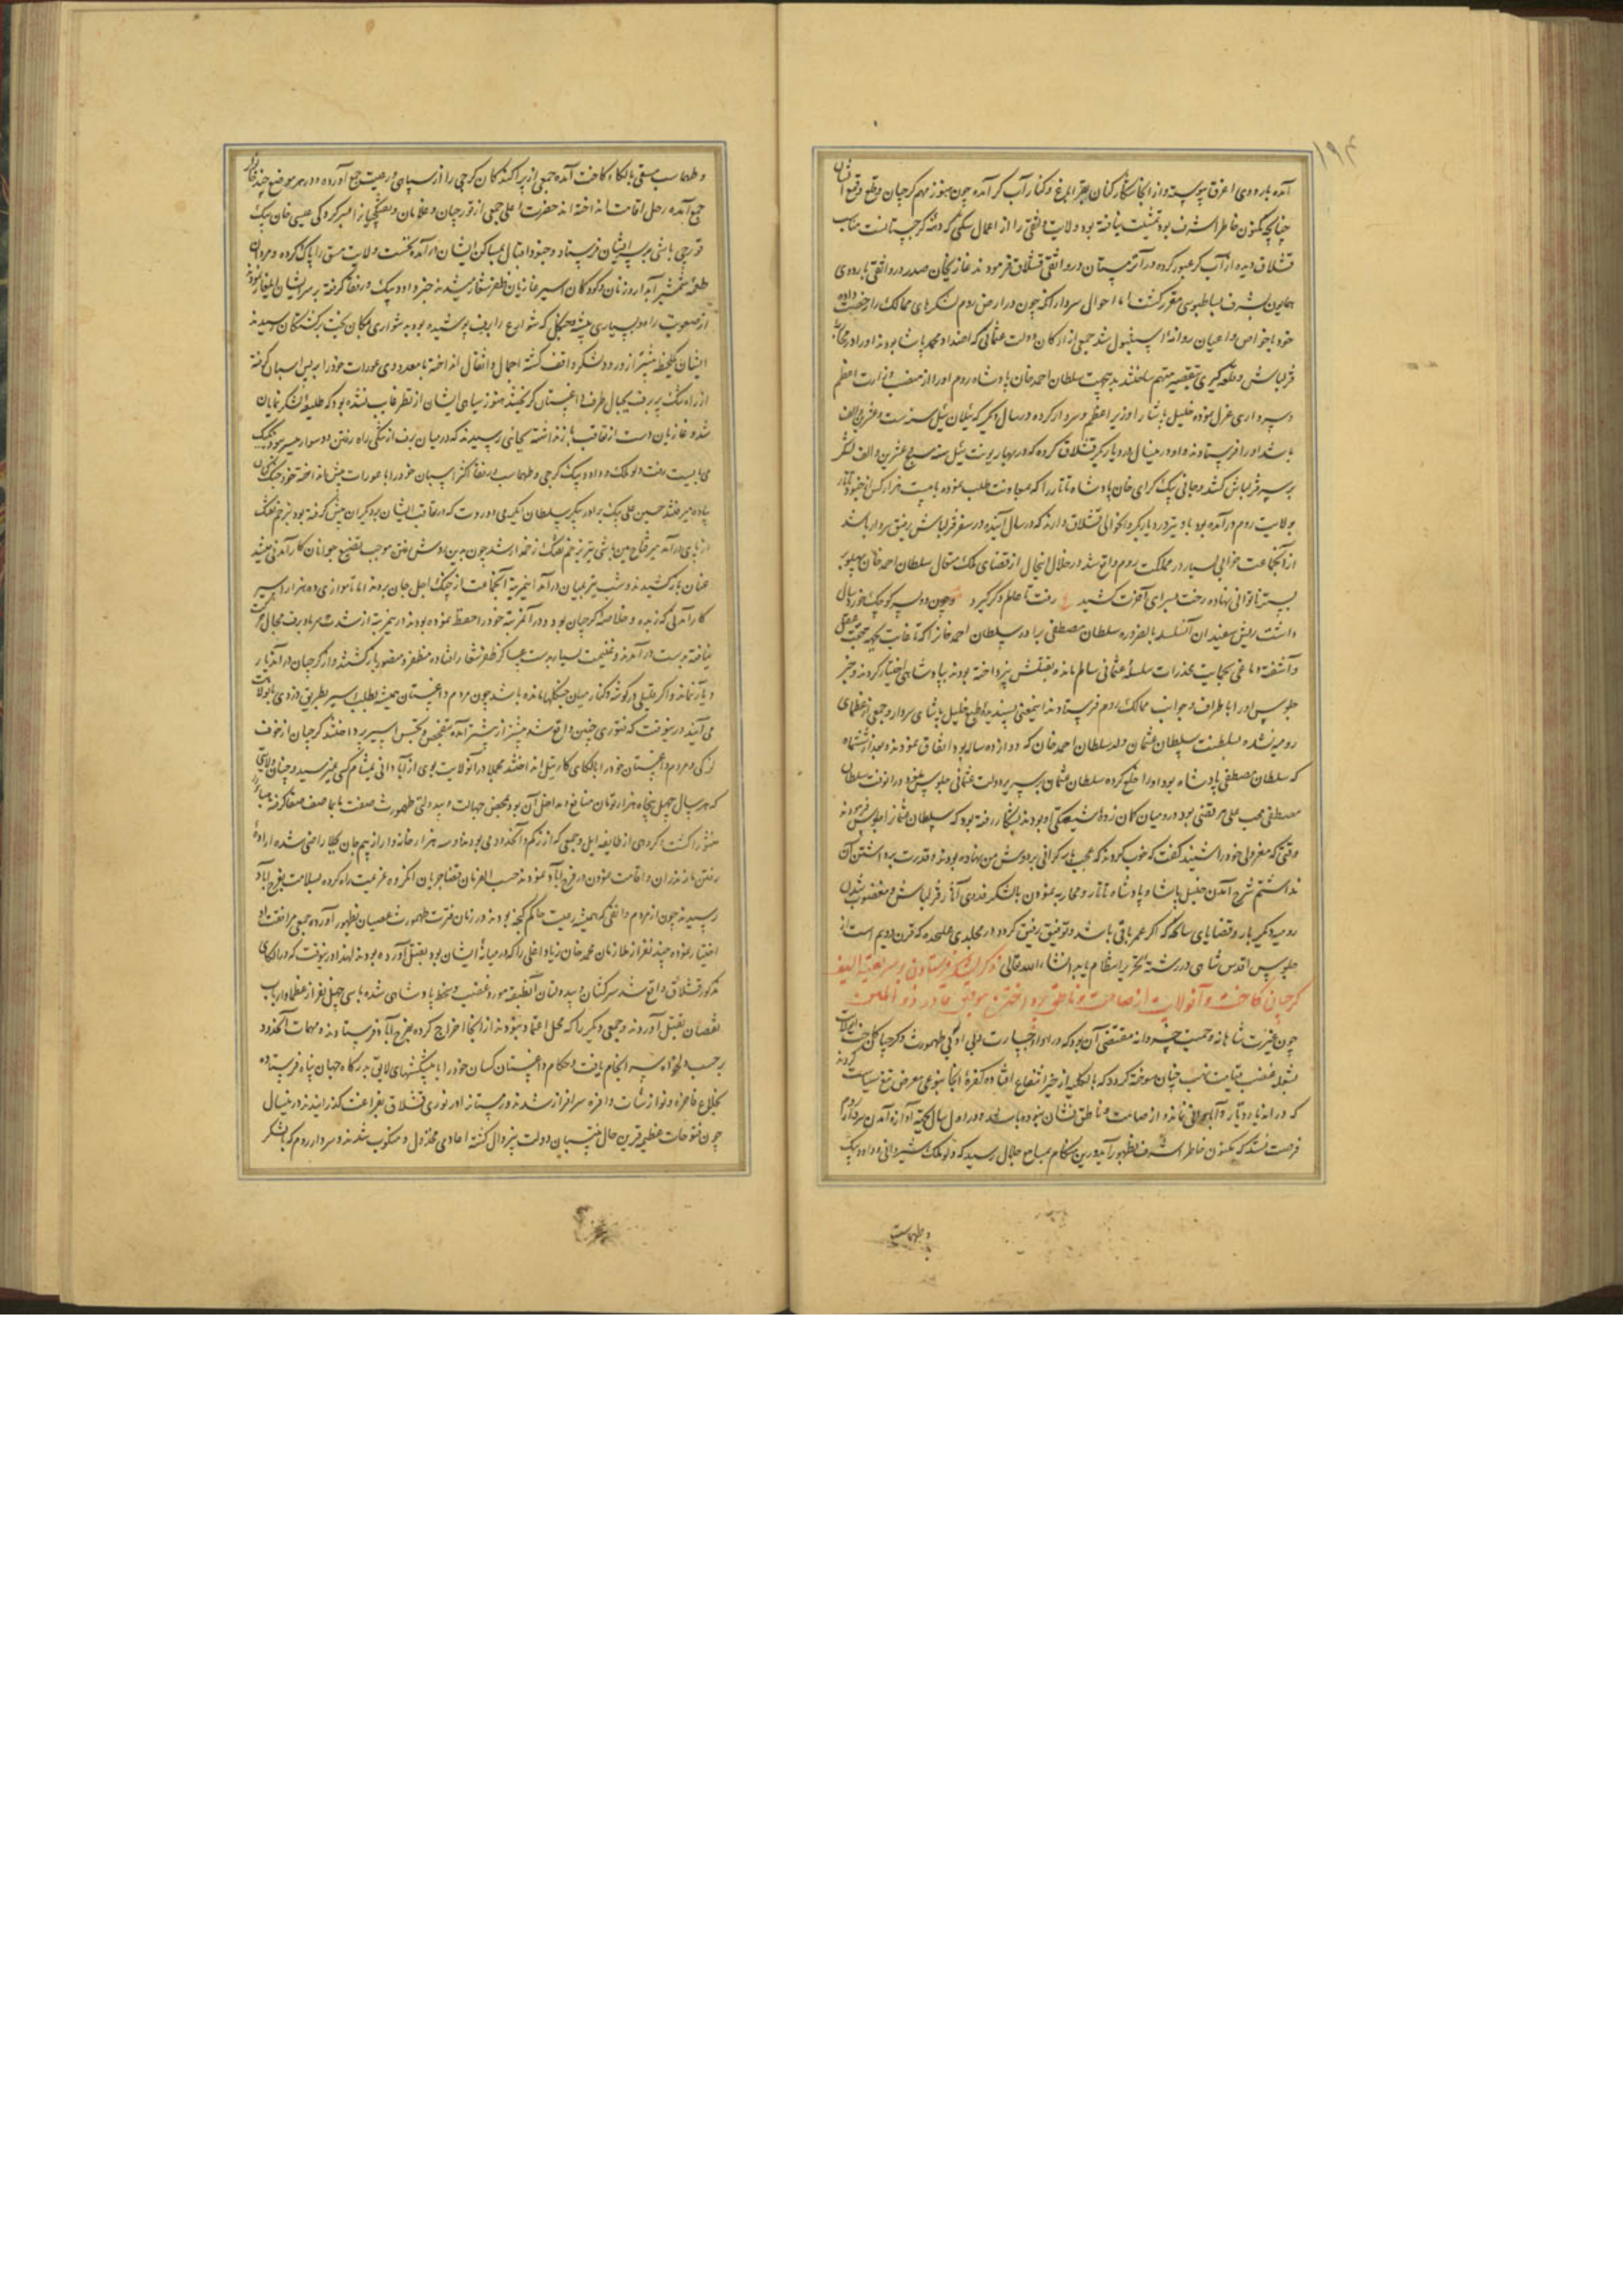 ۱۹۴
آمده باردوی اغرق پیوسته و از آنجا شکارکنان بقراباغ و کنار آب کر آمده چون هنوز مهم کرجیان و قلع و قمع ایشان
چنانچه مکنون خاطر اشرف بود تمشیت نیافته بود ولایت را از اعمال شکی که کرجستانست مناسب
قشلاق دیده از آب کر عبور کرده در آن زمستان در قشلاق فرمودند غازیان صدر در باردوی
همایون بشرف بساطبوسی مقرر کشت اما احوالی سردار آنکه چون در ارض روم لشکرهای ممالک را رخصت داده
خود با خواص و اعیان روانه استنبول شد جمعی از ارکان دولت عثمانی که اضداد محمد پاشا بودند او را در محاربه
قزلباش و قلعه کیری بتقصیر متهم ساختند بدین جهت سلطان احمد خان پادشاه روم او را از منصب وزارت اعظم
و سرداری عزل نموده خلیل پاشا را وزیر اعظم و سردار کرده در سال دیکر که ئیلان ئیل سنه ست و عشرین و الف
باشد او را فرستادند و او در این سال در دیاربکر قشلاق کرده که در بهار یونت ئیل سنه سبع عشرین و الف لشکر
بر سر قزلباش کشد و جانی بیک کرای خان پادشاه تاتار را که بمعاونت طلب نموده با بیست هزار کس از جنود تاتار
بولایت روم در آمده بود باو نیز در دیاربکر و آن حوالی قشلاق دارند که در سال آینده در سفر قزلباش رفیق سردار باشند
از آنجماعت خرابی بسیار در مملکت روم واقع شد در خلال اینحال از قضای ملک متعال سلطان احمد خان پهلو بر
بستر ناتوانی نهاده رخت بسرای آخرت کشید ع رفت تا عالم دکر کیرد و چون دو پسر کوچک خردسال
داشت ریش سفیدان آنسلسله بالضروره سلطان مصطفی برادر سلطان احمد خان را که تا غایت بجهة خفت عقل
و آشفته دماغی بحمایت مخدرات سلسله عثمانی سالم مانده بقتلش نپرداخته بودند بپادشاهی اختیار کردند و خبر
جلوس او را باطراف و جوانب ممالک روم فرستادند اینمعنی پسندیده طبع خلیل پاشای سردار و جمعی از عظمای
رومیه نشده بسلطنت سلطان عثمان ولد سلطان احمد خان که دوازده ساله بود اتفاق نمودند و بعد از شش ماه
که سلطان مصطفی پادشاه بود او را خلع کرده سلطان عثمان بر سریر دولت عثمانی جلوس نمود در آنوقت سلطان
مصطفی محب علی مرتضی بود و در میان کان زده شیعکی او بودند بشکار رفته بود که سلطان عثمان را جلوس فرمودند
وقتی که معزولی خود را شنید کفت که خوب کردند که عجب بار کرانی بر دوش من نهاده بودند و قدرت برداشتن آن
نداشتم شرح آمدن خلیل پاشا و پادشاه تاتار و محاربه نمودن با لشکر قدری آثار قزلباش و مغضوب شدن
رومیه دیکر بار و قضایای سانحه که اکر عمر باقی باشد و توفیق رفیق کردد در مجلدی علیحده که قرن دویم است از
جلوس اقدس شاهی در رشته تحریر انتظام یابد انشاء الله تعالی ذکر لشکر فرستادن بر سر بقیة السیف
کرجیان کاخت و آنولایت از صامت و ناطق پرداختن بتوفیق قادر ذو المنن
چون غیرت شاهانه و حمیت خسروانه مقتضی آن بود که در ازاء جسارت و بی ادبی طهمورث و کرجیان کاخت ایولایت
بشعله غضب قیامت لهب چنان سوخته کردد که بالکلیه از حیز انتفاع افتاده کفره آنجا بنوعی معرض تیغ سیاست کردند
که در آنها دیار و آبادانی نماند و از صامت و ناطق نشان نبوده باشد و در اول سال بجهة آوازه آمدن سردار روم
فرصت نشد که مکنون خاطر اشرف بظهور آید درین هنکام بمسامع جلال رسید که دلو ملک شیروانی و داود بیک
و طهماسب
و طهماسب مسقی بالکاء کاخت آمده جمعی از پراکندکان کرجی را از سپاهی و رعیت جمع آورده و در هر موضع چند خانوار
جمع آمده رحل اقامت انداخته اند حضرت اعلی جمعی از قورچیان و غلامان و تفنکچیان را بسرکردکی عیسی خان بیک
قورچی باشی بر سر ایشان فرستاد و جنود اقبال بمساکن ایشان در آمده نخست ولایت مسق را پاک کرده و مردان
طعمه شمشیر آبدار و زنان و کودکان اسیر غازیان ظفر شعار میشدند خبر داود بیک و رفقا کرفته بر سر ایشان ایلغار نمودند
از صعوبت راه و بسیاری بیشه و جنکل که شوارع را برف پوشیده بود بدشواری بمکان بخت برکشتکان رسیدند
ایشان یکلحظه پیشتر از ورود لشکر واقف کشته احمال و اثقال انداخته با معدودی عورات خود را بر پس اسبان کرفته
از راه تنک پر برف بجبال طرف داغستان کریختند هنوز سیاهی ایشان از نظر غایب نشده بود که طلیعه لشکر نمایان
شد و غازیان دست از تعاقب باز نداشته بجائی رسیدند که در میان برف از تنکی راه رفتن دو سوار میسر نبود یک یک
می بایست رفت دلو ملک و داود بیک کرجی و طهماسب و رفقا اکثر اسبان خود را با عورات پیش انداخته خود جنک کنان
پیاده میرفتند حسین علی بیک برادر پیکر سلطان ایکرمی دورت که در تعاقب ایشان بر دیکران پیش کرفته بود بزخم تفنک
از پای در آمد میر فتاح مین باشی نیز بزخم تفنک زخمدار شد چون بدین روش رفتن موجب تضییع جوانان کارآمدنی میشد
عنان باز کشیدند و شب نیز بمیان در آمد اینمرتبه آنجماعت از چنک اجل جان بردند اما تا موازی ده هزار اسیر
کارآمدنی که زبده و خلاصه کرجیان بود و در آنمرتبه خود را حفظ نموده بودند در این مرتبه از شدت سرما و برف مجال کریز
نیافته بدست در آمدند و غنیمت بسیار بدست عساکر ظفر شعار افتاده مظفر و منصور بازکشتند و از کرجیان در آندیار
دیار نماند و اکر قلیلی در کوشه و کنار میان جنکلها مانده باشد چون مردم داغستان همیشه بطلب اسیر بطریق دزدی بآنولایت
می آیند درینوقت که فتوری چنین واقع شد بیشتر از پیشتر آمده بتفحص و تجسس اسیر پرداختند کرجیان از خوف
لزکی و مردم داغستان خود را بالکای کارتیل انداختند مجملا در آنولایت بوی از آبادانی بمشام کسی نمیرسید و چنان ولایتی
که هر سال چهل پنجاه هزار تومان منافع و مداخل آن بود بمحض جهالت و بیدولتی طهمورث صفت قاعا صفصفا کرفته هباء
منثورا کشت و کروهی از طایفه ایل و جمعی که از ترکم و آنحدود می بودند دو سه هزار خانه وار از بیم جان بجلا راضی شده اراده
رفتن مازندران و اقامت نمودن در فرح آباد نمودند حسب الفرمان قضا جریان انکروه عزیمت راه کرده بسلامت بفرح آباد
رسیدند چون از مردم که همیشه رعیت حاکم کنجه بودند در زمان فترت طهمورث عصیان بظهور آورده جمعی مرافقت او
اختیار نموده چند نفر از ملازمان محمد خان زیاد اغلی را که در میانه ایشان بود بقتل آورده بودند لهذا درینوقت که در الکای
مذکور قشلاق واقع شد سرکشان و بیدولتان آنطبقه مورد غضب و سخط پادشاهی شده با سی چهل نفر از عظماء ارباب
نقصان بقتل آوردند و جمعی دیکر را که محل اعتماد نبودند از آنجا اخراج کرده بفرح آباد فرستادند و مهمات آنحدود
بر حسب دلخواه سر انجام یافت و حکام داغستان کسان خود را با پیشکشهای لایق بدرکاه جهان پناه فرستاده
بخلاع فاخره و نوازشات وافره سرافراز شدند و زمستان را در نوری قشلاق بفراغت کذرانیدند درینسال
چون فتوحات عظیم قرین حال منتسبان دولت بیزوال کشته اعادی مخذول و منکوب شدند و سردار روم که با لشکر